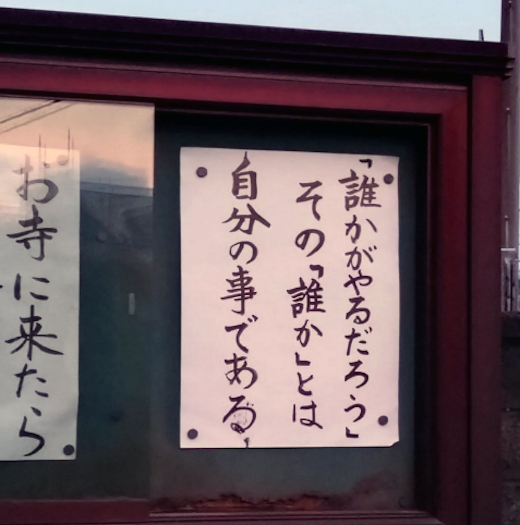 「誰かがやるだろう」
その「誰か」とは
自分の事である
お寺に来たら